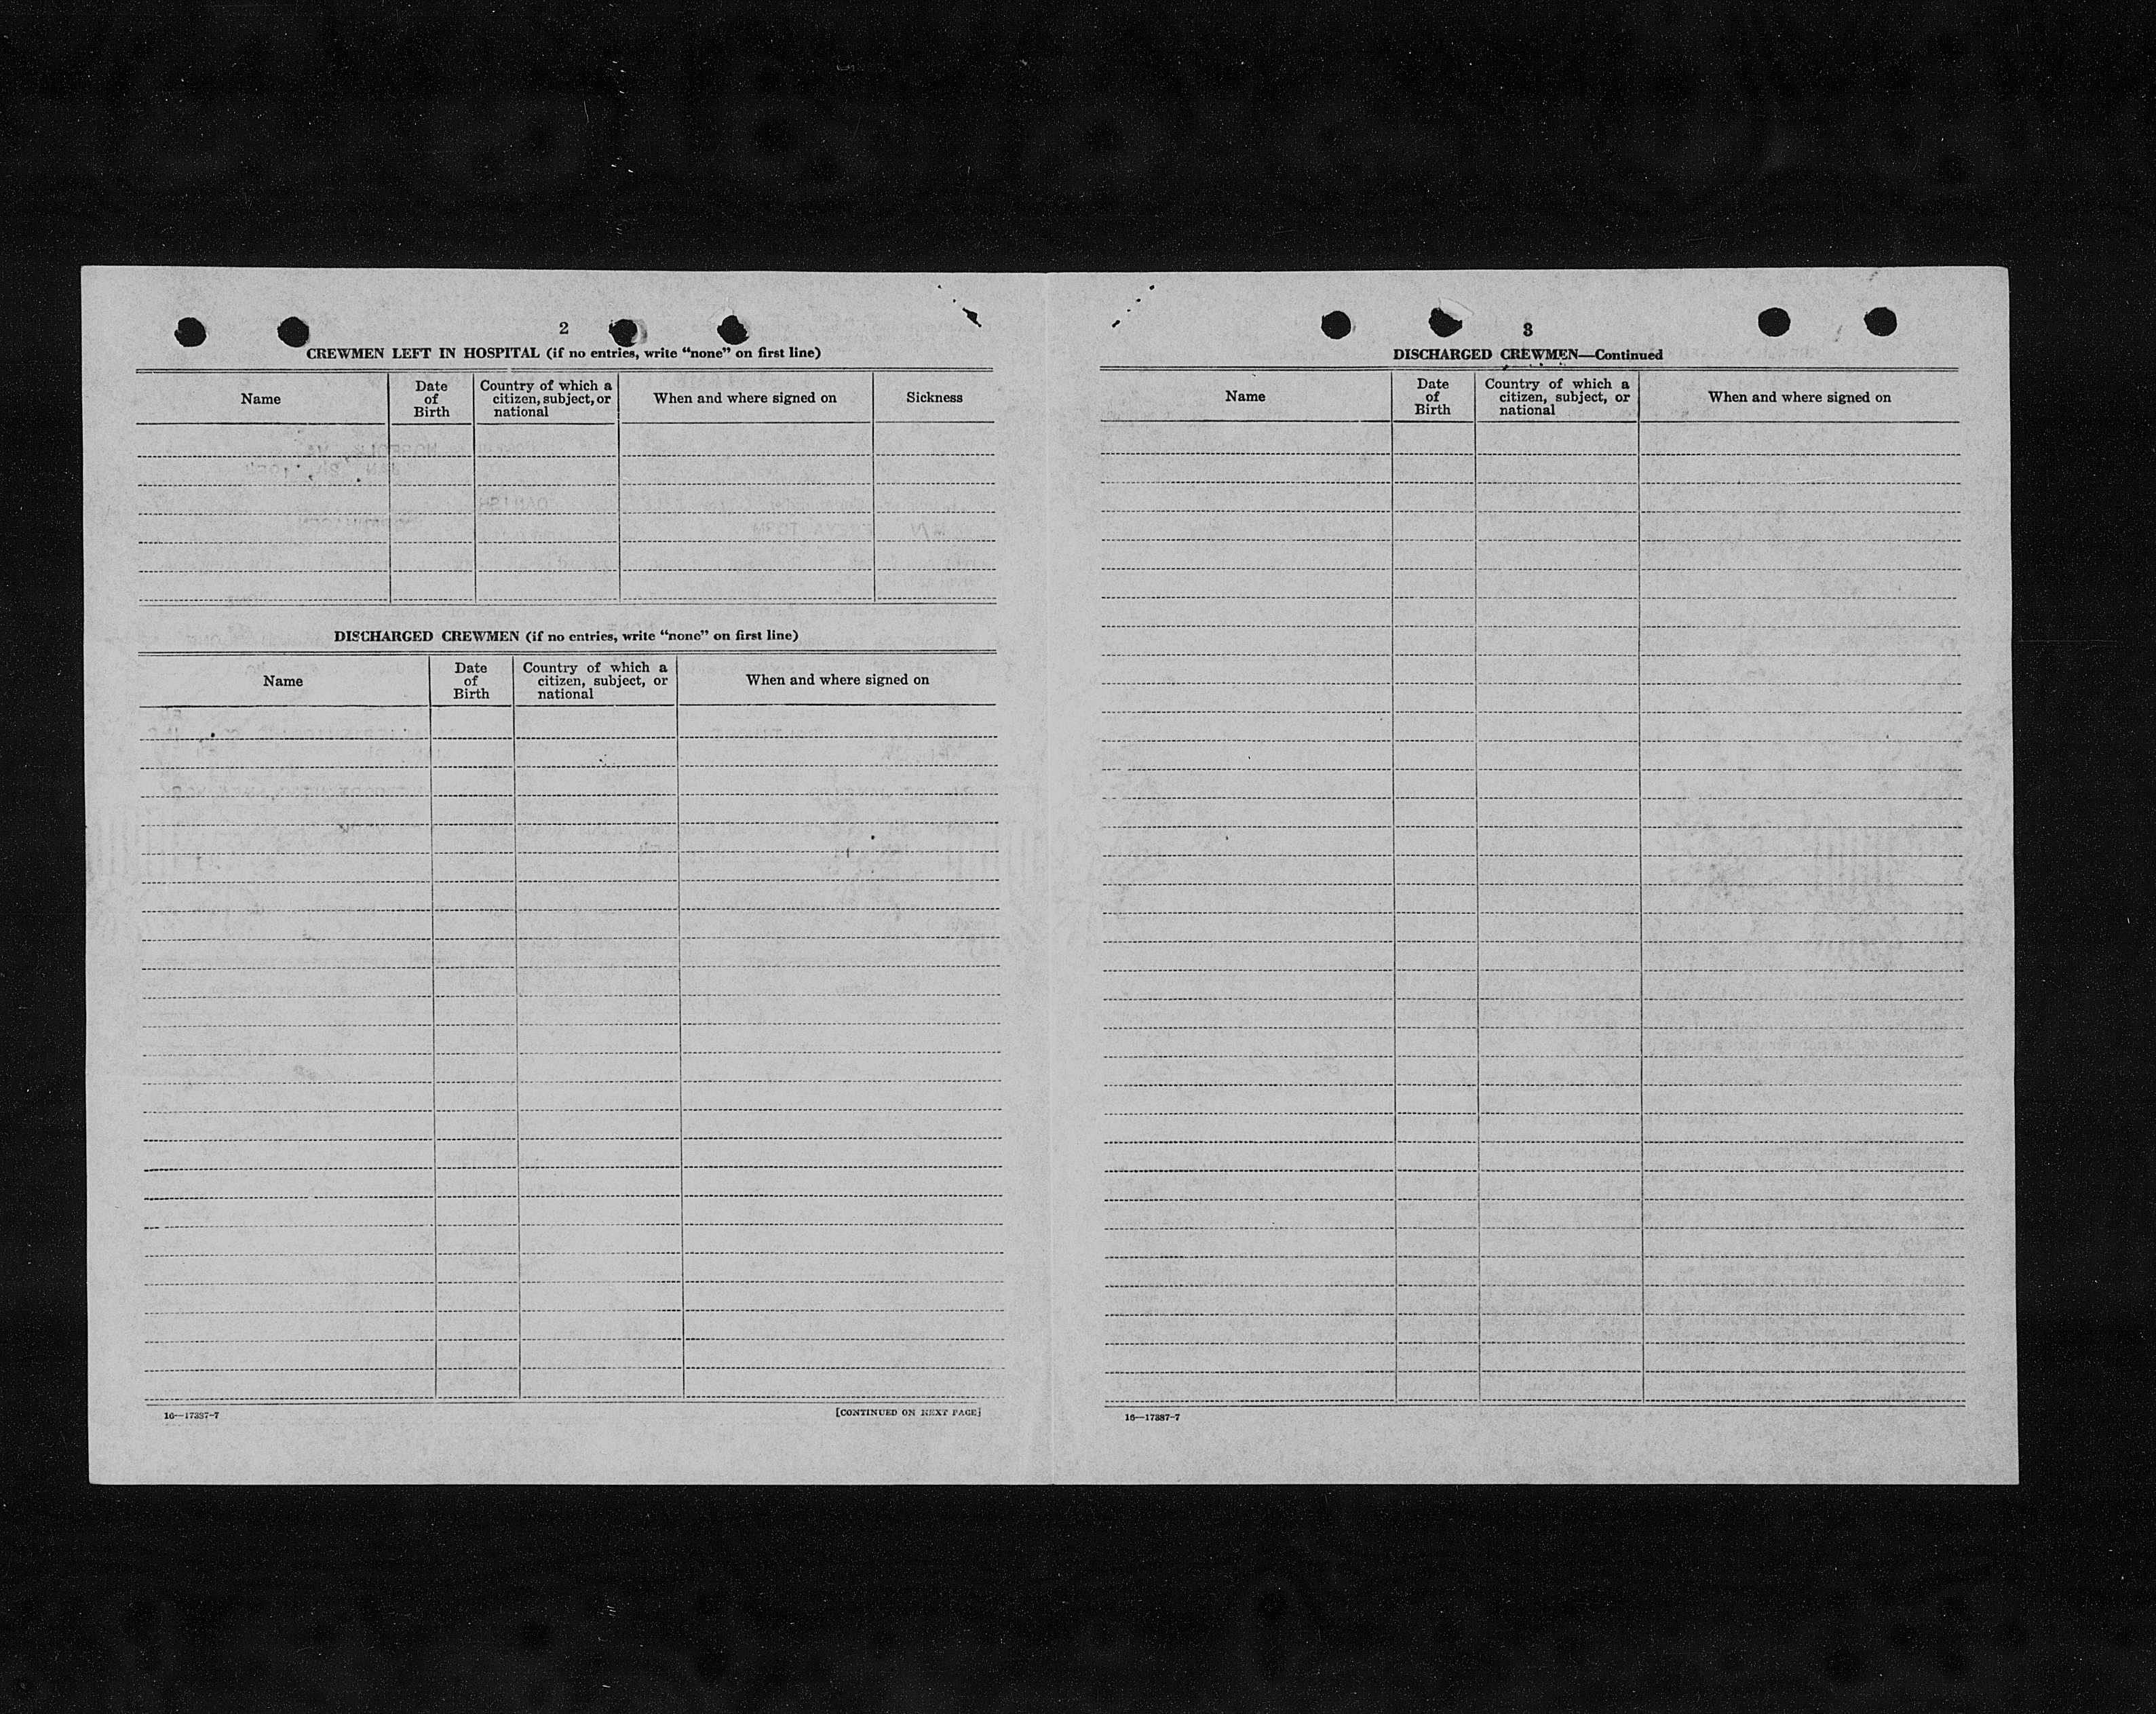 2
CREWMEN LEFT IN HOSPITAL (if no entries, write “none” on first line)
Name
Date of Birth
Country of which a citizen, subject, or national
When and where signed on
Sickness
DISCHARGED CREWMEN (if no entries, write “none” on first line)
Name
Date of Birth
Country of which a citizen, subject, or national
When and where signed on
16—17387-7
[CONTINUED ON NEXT PAGE]
3
DISCHARGED CREWMEN—Continued
Name
Date of Birth
Country of which a citizen, subject, or national
When and where signed on
16—17387-7